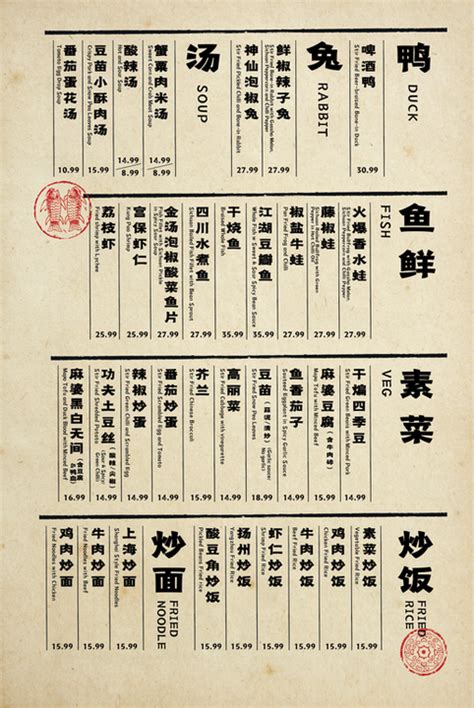 鸭
DUCK
啤酒鸭
Stir Fried Beer-braised Bone-in Duck
30.99
兔
RABBIT
鲜椒辣子兔
27.99
神仙泡椒兔
Stir Fried Pickled Chili and Bone-in Rabbit
27.99
汤
SOUP
蟹粟肉米汤
Sweet Corn and Crab Meat Soup
14.99
8.99
酸辣汤
Hot and Sour Soup
14.99
8.99
豆苗小酥肉汤
Crispy Pork and Snow Pea Leaves Soup
15.99
番茄蛋花汤
Tomato Egg Drop Soup
10.99
鱼鲜
FISH
火爆香水蛙
27.99
藤椒蛙
27.99
椒盐牛蛙
Pan Fried Frog and Chili
27.99
江湖豆瓣鱼
Whole Fish w Sweet & Sour Spicy Bean Sauce
35.99
干烧鱼
Braised Whole Fish
35.99
四川水煮鱼
Sichuan Boiled Fish Fillets with Bean Sprout
27.99
金汤泡椒酸菜鱼片
Fish Fillet with Sichuan Pickle in Spicy Sour Soup
27.99
宫保虾仁
Kung Pao Shrimp
25.99
荔枝虾
Fried Shrimp with Lychee
25.99
素菜
VEG
干煸四季豆
Stir Fried Green Beans with Minced Pork
14.99
麻婆豆腐(含牛肉沫)
Mapo Tofu with Minced Beef
14.99
鱼香茄子
Sauteed Eggplant in Spicy Garlic Sauce
14.99
豆苗
Stir Fried Snow Pea Leaves
(Garlic sauce/No garlic)
18.99
高丽菜
Fried Cabbage with vinegarette
14.99
芥兰
Stir Fried Chinese Broccoli
14.99
番茄炒蛋
Stir Fried Scrambled Egg and Tomato
14.99
辣椒炒蛋
Stir Fried Green Chili and Scrambled Egg
14.99
功夫土豆丝
Stir Fried Shredded Potato
14.99
麻婆黑白无间
Mapo Tofu and Duck Blood with Minced Beef
16.99
炒饭
FRIED RICE
素菜炒饭
Vegetable Fried Rice
15.99
鸡肉炒饭
Chicken Fried Rice
15.99
牛肉炒饭
Beef Fried Rice
15.99
虾仁炒饭
Shrimp Fried Rice
15.99
扬州炒饭
Yangzhou Fried Rice
15.99
酸豆角炒饭
Pickled Beans Fried Rice
15.99
炒面
FRIED NOODLE
上海炒面
Shanghai Style Fried Noodles
15.99
牛肉炒面
Fried Noodles with Beef
15.99
鸡肉炒面
Fried Noodles with Chicken
15.99